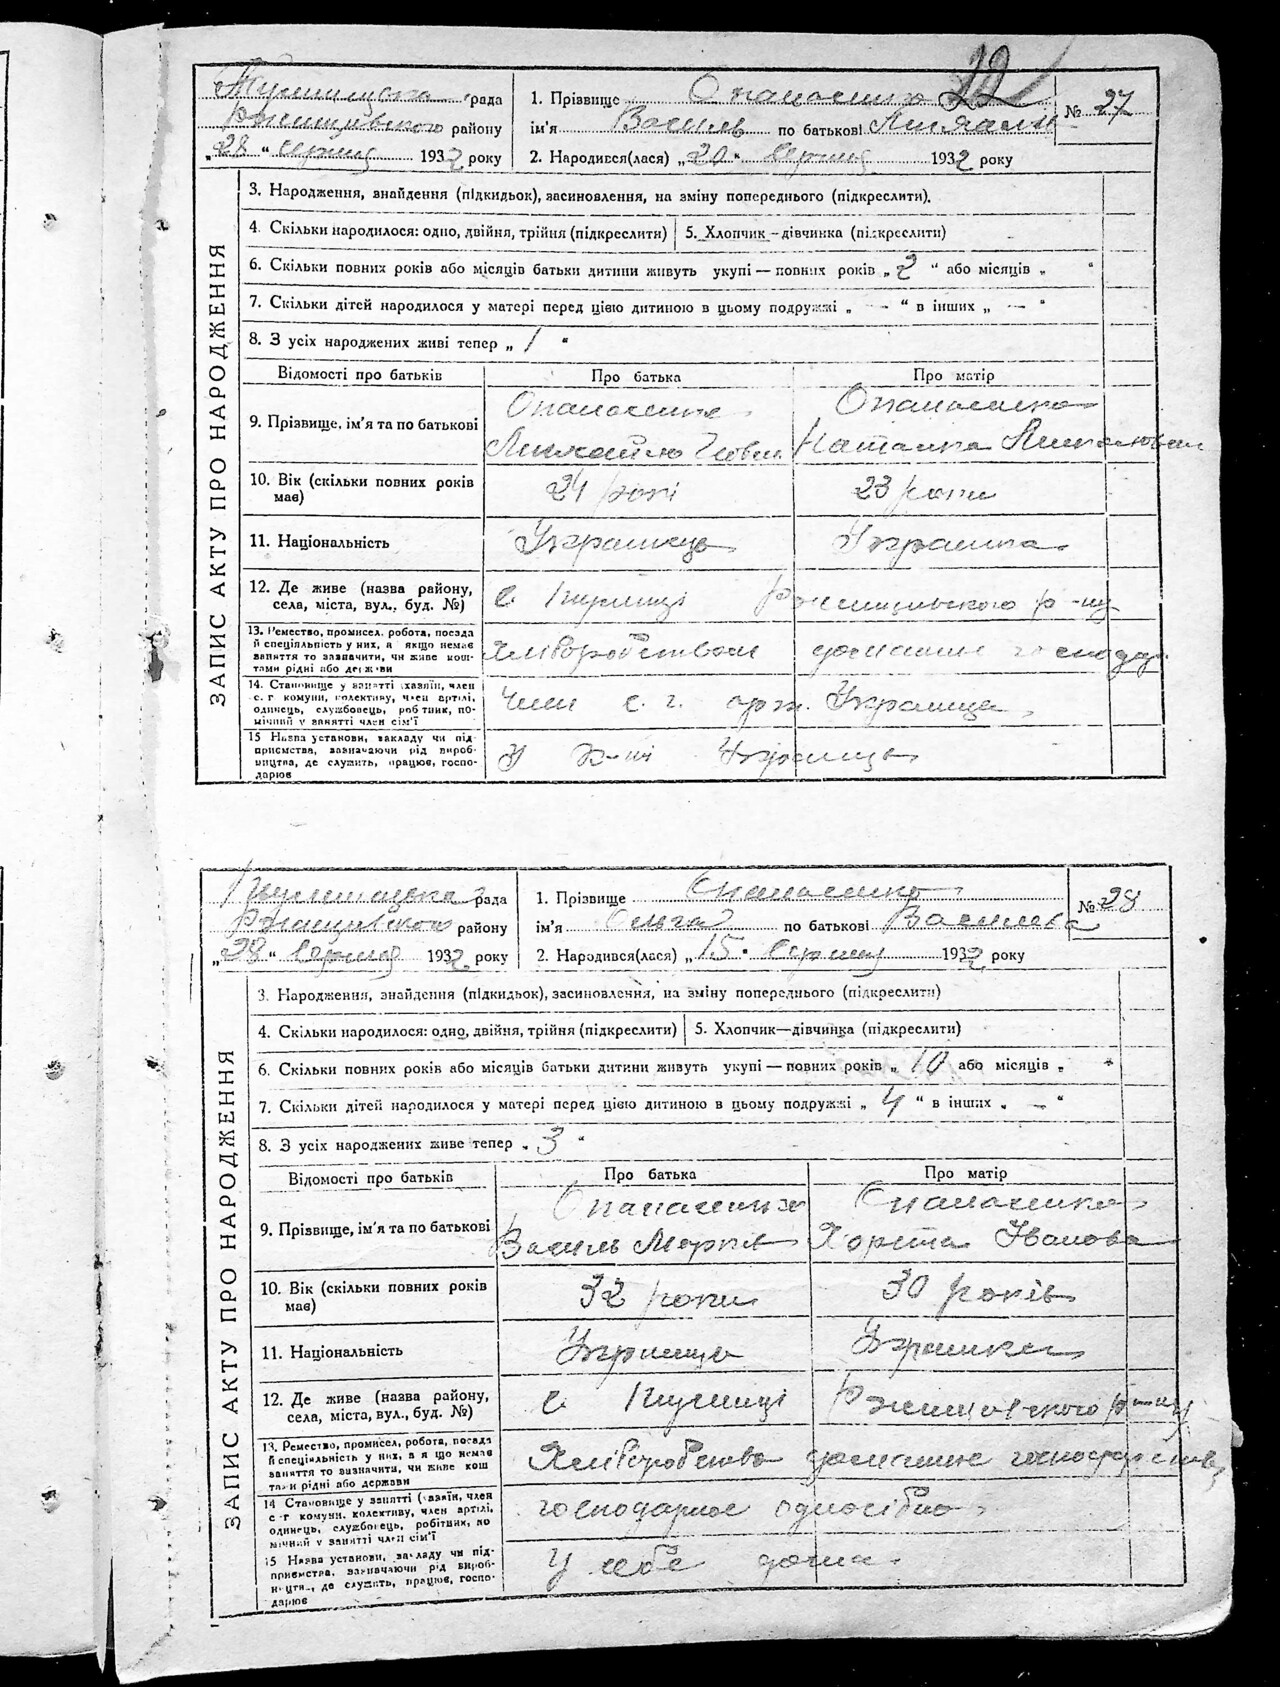 22
рада
Ржищівського району
„28“ серпня 1932 року
1. Прізвище Опанасенко
ім'я Василь по батькові
2. Народився(лася) „20“ серпня 1932 року
№ 27
ЗАПИС АКТУ ПРО НАРОДЖЕННЯ
3. Народження, знайдення (підкидьок), засиновлення, на зміну попереднього (підкреслити).
4. Скільки народилося: одно, двійня, трійня (підкреслити)
5. Хлопчик—дівчинка (підкреслити)
6. Скільки повних років або місяців батьки дитини живуть укупі — повних років „2“ або місяців „ “
7. Скільки дітей народилося у матері перед цією дитиною в цьому подружжі „ — “ в інших „ — “
8. З усіх народжених живі тепер „1“
Відомості про батьків Про батька Про матір
9. Прізвище, ім'я та по батькові
Опанасенко Опанасенко
Михайло Наталка
10. Вік (скільки повних років має)
24 рокі 23 роки
11. Національність
Українець Українка
12. Де живе (назва району, села, міста, вул., буд. №)
с. Ржищівського р-ну
13. Ремество, промисел, робота, посада й спеціяльність у них, а якщо немає заняття то зазначити, чи живе коштами рідні або держави
Хліборобством домашнє господар
14. Становище у занятті (хазяїн, член с.-г. комуни, колективу, член артілі, одинець, службовець, робітник, помічний у занятті член сім'ї
Член с. г. арт. Українець
15 Назва установи, закладу чи підприємства, зазначаючи рід виробництва, де служить, працює, господарює
У
рада
Ржищівського району
„28“ серпня 1932 року
1. Прізвище Опанасенко
ім'я Ольга по батькові Василева
2. Народився(лася) „15“ серпня 1932 року
№ 28
ЗАПИС АКТУ ПРО НАРОДЖЕННЯ
3. Народження, знайдення (підкидьок), засиновлення, на зміну попереднього (підкреслити)
4. Скільки народилося: одно, двійня, трійня (підкреслити)
5. Хлопчик—дівчинка (підкреслити)
6. Скільки повних років або місяців батьки дитини живуть укупі — повних років „10 або місяців „ “
7. Скільки дітей народилося у матері перед цією дитиною в цьому подружжі „4“ в інших „ — “
8. З усіх народжених живе тепер „3“
Відомості про батьків Про батька Про матір
9. Прізвище, ім'я та по батькові
Опанасенко Опанасенко
Василь Марків Хорита Іванова
10. Вік (скільки повних років має)
32 роки 30 років
11. Національність
Українець Українка
12. Де живе (назва району, села, міста, вул., буд. №)
с. Ржищівського р-ну
13. Ремество, промисел, робота, посада й спеціяльність у них, а якщо немає заняття то зазначити, чи живе коштами рідні або держави
Хліборобство домашнє господарство
14 Становище у занятті (хазяїн, член с-г комуни, колективу, член артілі, одинець, службовець, робітник, помічний у занятті член сім'ї
господарює одноосібно
15 Назва установи, закладу чи підприємства, зазначаючи рід виробництва, де служить, працює, господарює
У себе дома